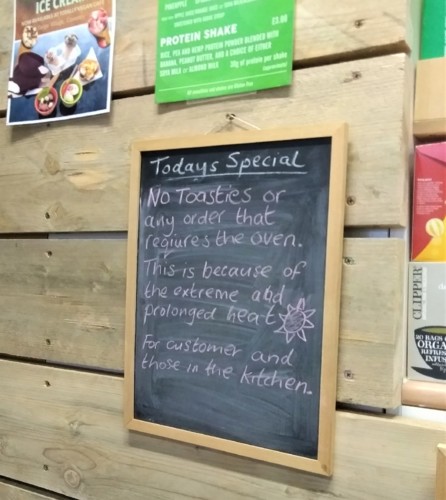 ICE CREAM
PROTEIN SHAKE
£3.60
RICE, PEA AND HEMP PROTEIN POWDER BLENDED WITH
BANANA, PEANUT BUTTER, AND A CHOICE OF EITHER
SOYA MILK or ALMOND MILK
20g of protein per shake
Todays Special
No Toasties or
any order that
reqiures the oven.
This is because of
the extreme and
prolonged heat
For customer and
those in the kitchen.
CLIPPER
20 BAGS
ORGA
INFUS